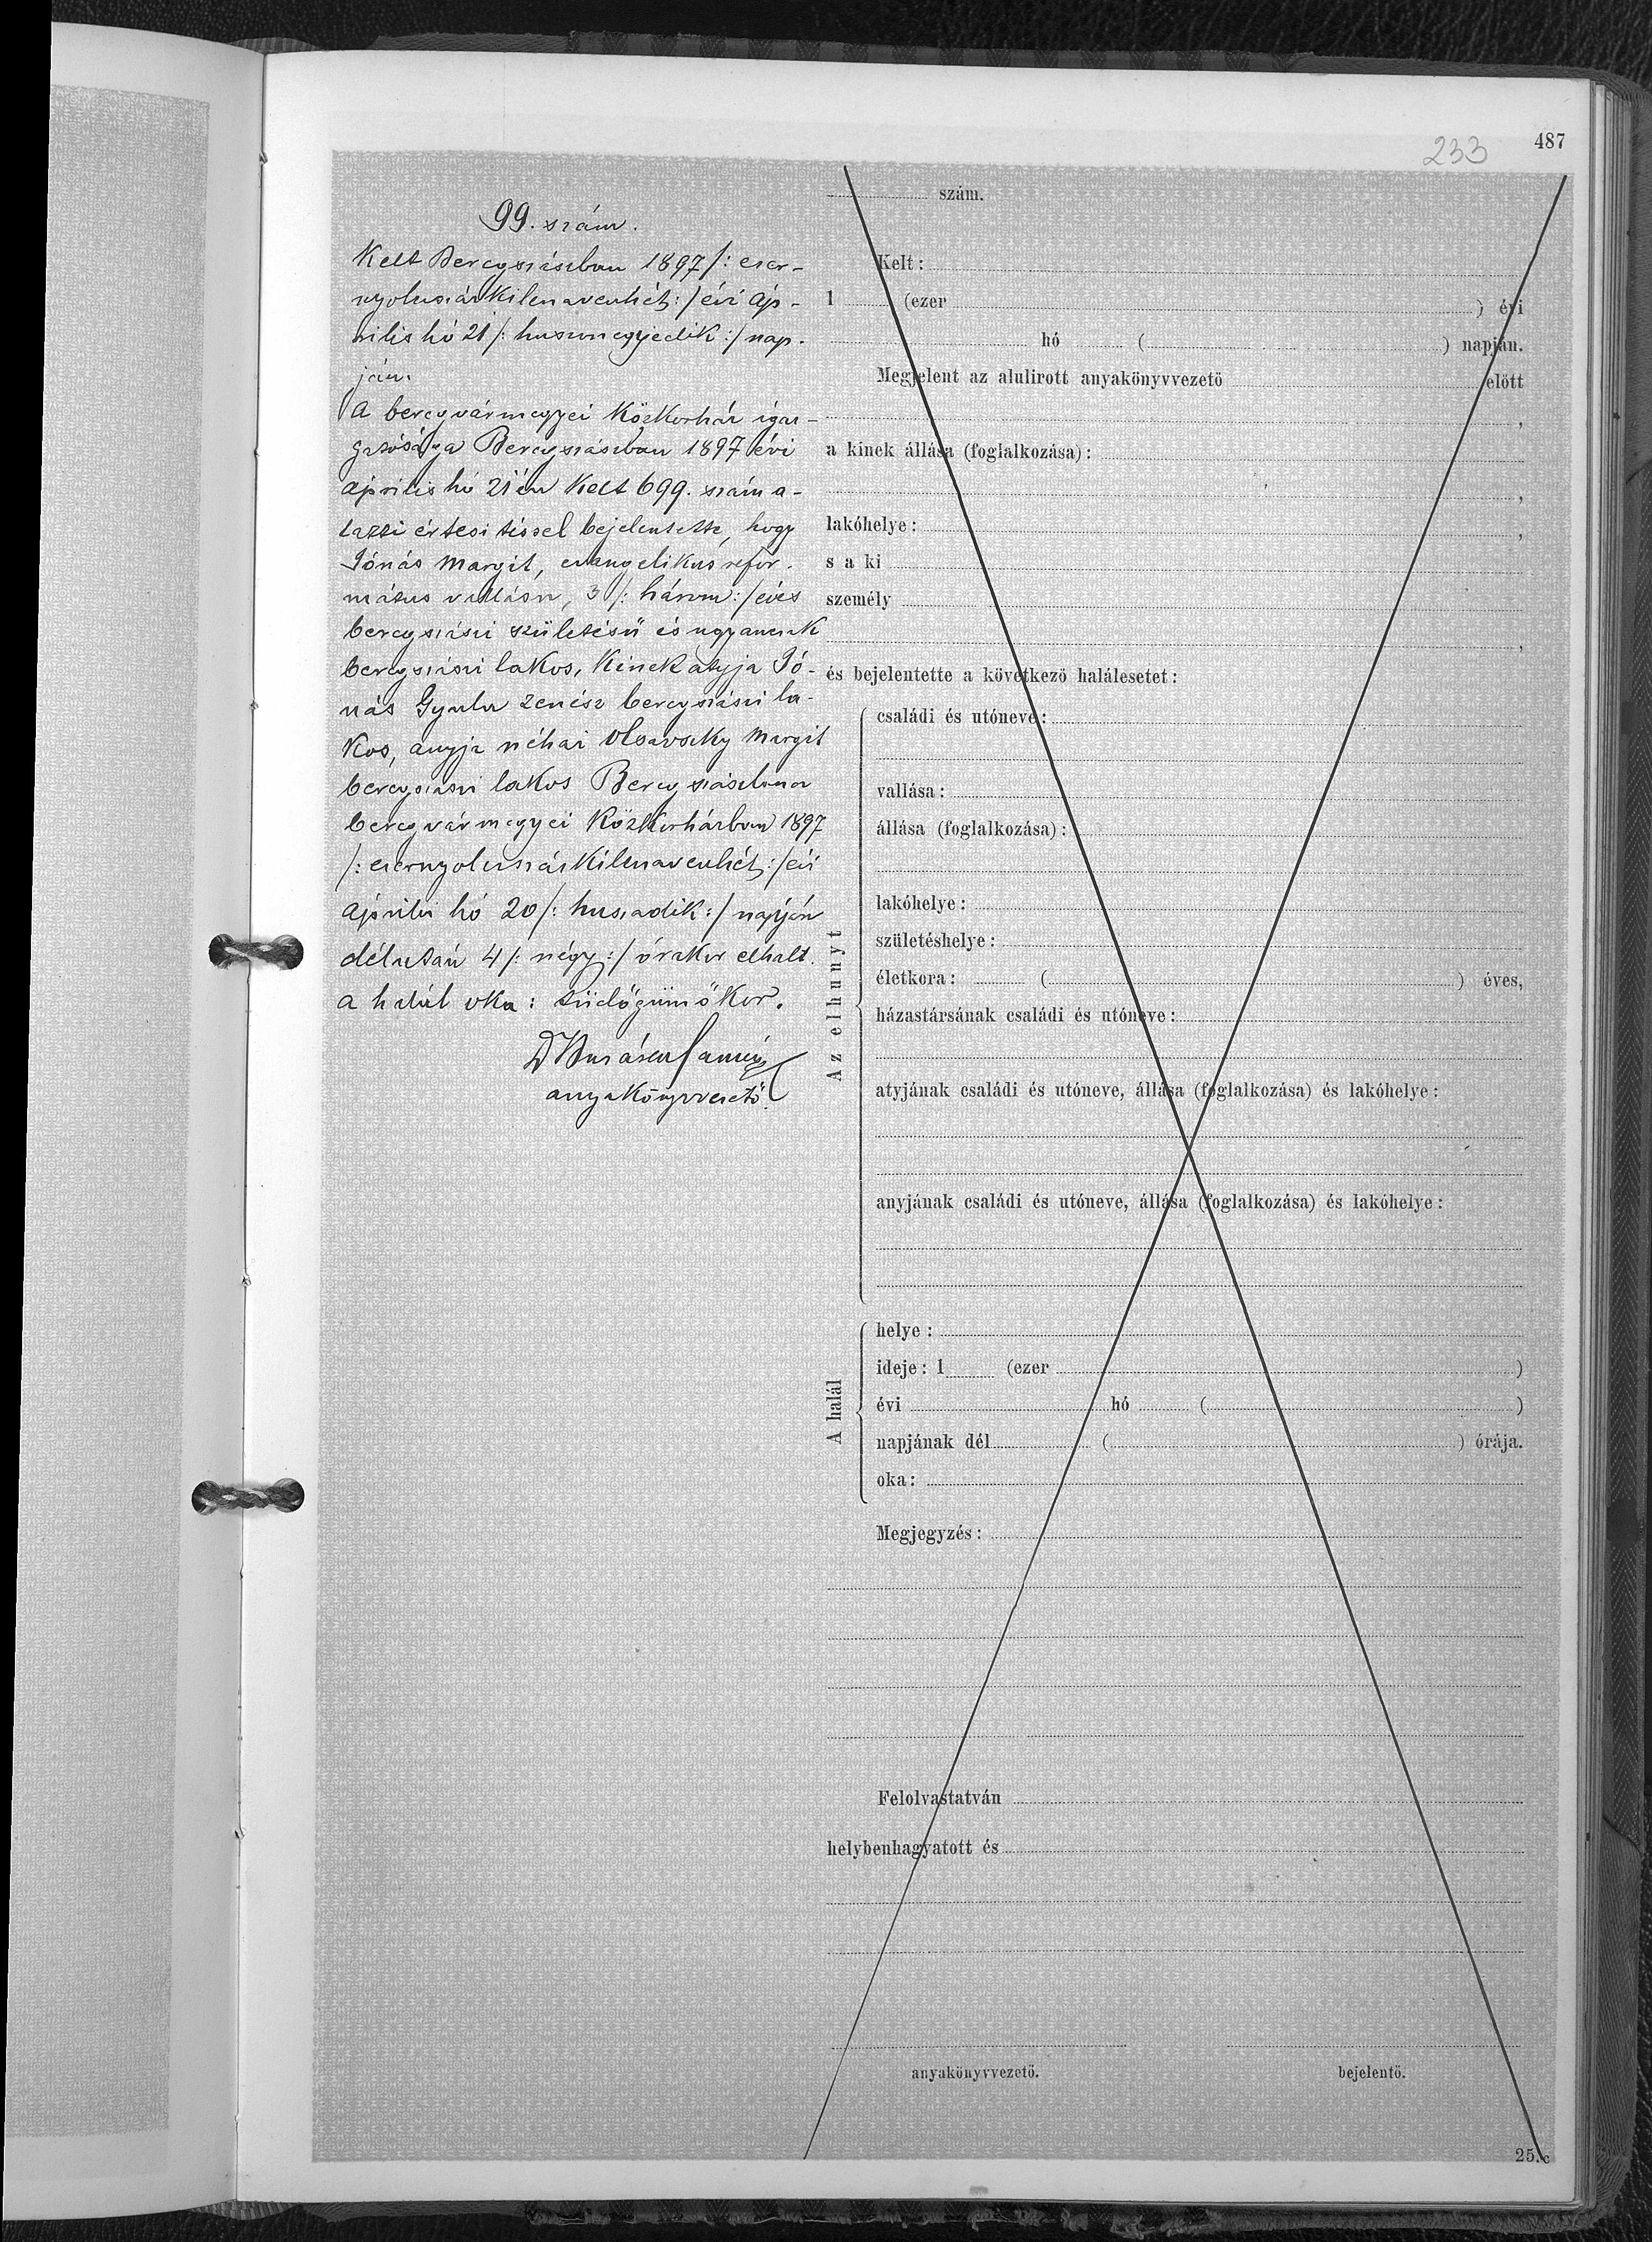 233
487
99. szám.
Kelt Beregszászban 1897 /: ezer-
nyolcszázkilencvenhét :/ évi áp-
rilis hó 21 /: huszonegyedik :/ nap-
ján.
A beregvármegyei közkorház igaz-
gatósága Beregszászban 1897 évi
április hó 21 én kelt 699. szám a-
latti értesitéssel bejelentette, hogy
Jónás Margit, evangelikus refor-
mátus vallásu, 3 /: három :/ éves
beregszászi születésü és ugyancsak
beregszászi lakos, kinek atyja Jó-
nás Gyula zenész beregszászi la-
kos, anyja néhai Olsavszky Margit
beregszászi lakos Beregszászban a
beregvármegyei közkorházban 1897
/: ezernyolcszázkilencvenhét :/ évi
április hó 20 /: huszadik :/ napján
délután 4 /: négy :/ órakor elhalt.
a halál oka: tüdőgümőkor.
anyakönyvvezető
szám.
Kelt :
1 (ezer ) évi
hó ( ) napján.
Megjelent az alulirott anyakönyvvezető előtt
,
a kinek állása (foglalkozása) :
,
lakóhelye : ,
s a ki
személy
,
és bejelentette a következő halálesetet :
Az elhunyt
családi és utóneve :
vallása :
állása (foglalkozása) :
lakóhelye :
születéshelye :
életkora : ( ) éves,
házastársának családi és utóneve :
atyjának családi és utóneve, állása (foglalkozása) és lakóhelye :
anyjának családi és utóneve, állása (foglalkozása) és lakóhelye :
A halál
helye :
ideje : 1 (ezer )
évi hó ( )
napjának dél ( ) órája.
oka :
Megjegyzés :
Felolvastatván
helybenhagyatott és
anyakönyvvezető. bejelentő.
25.c